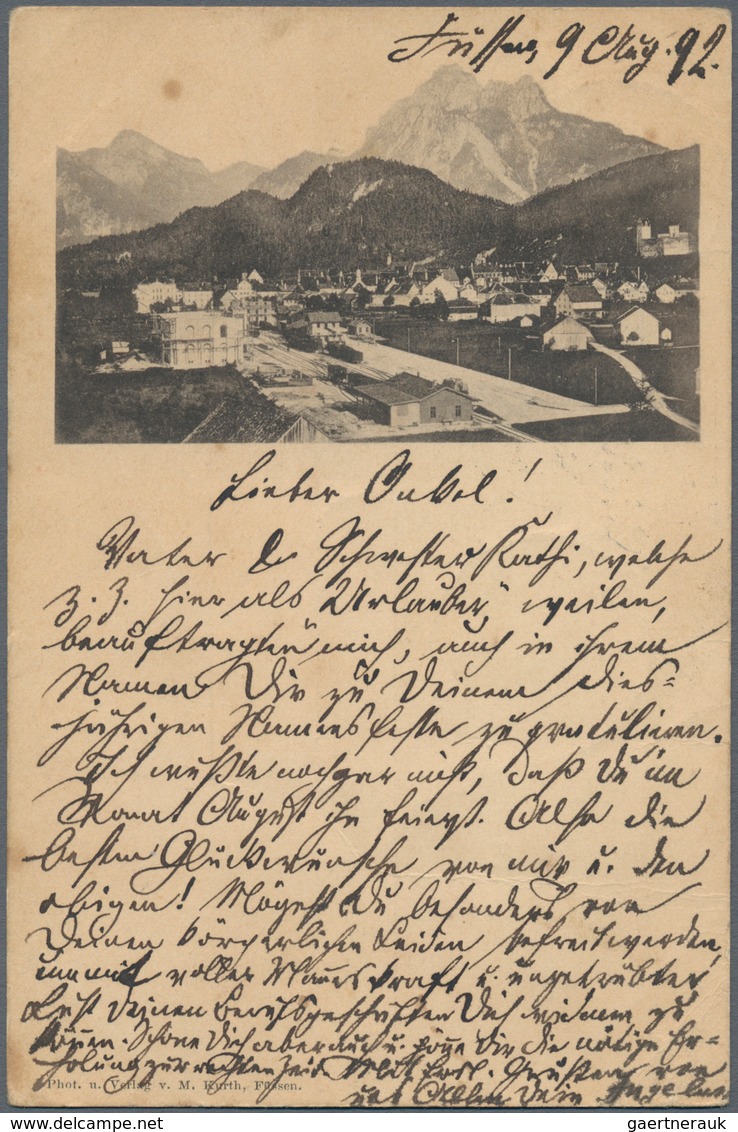 Füssen, 9 Aug. 92.
Lieber Onkel!
Vater & Schwester Kathi, welche
z. Z. hier als "Urlauber" weilen,
beauftragten mich, auch in ihrem
Namen Dir zu Deinem dies-
jährigen Namensfeste zu gratulieren.
Ich wußte noch gar nicht, daß Du im
Monat August ihn feierst. Also die
besten Glückwünsche von mir u. den
obigen! Mögest Du besonders von
Deinen körperlichen Leiden befreit werden,
um mit voller Manneskraft u. ungetrübter
Lust Deinen Berufsgeschäften Dich widmen zu
können. Schone Dich aber auch u. gönne Dir die nötige Er-
holung zur rechten Zeit. Mit herzl. Grüßen von
uns Allen Dein
Phot. u. Verlag v. M. Kurth, Füssen.
gaertnerauk.com